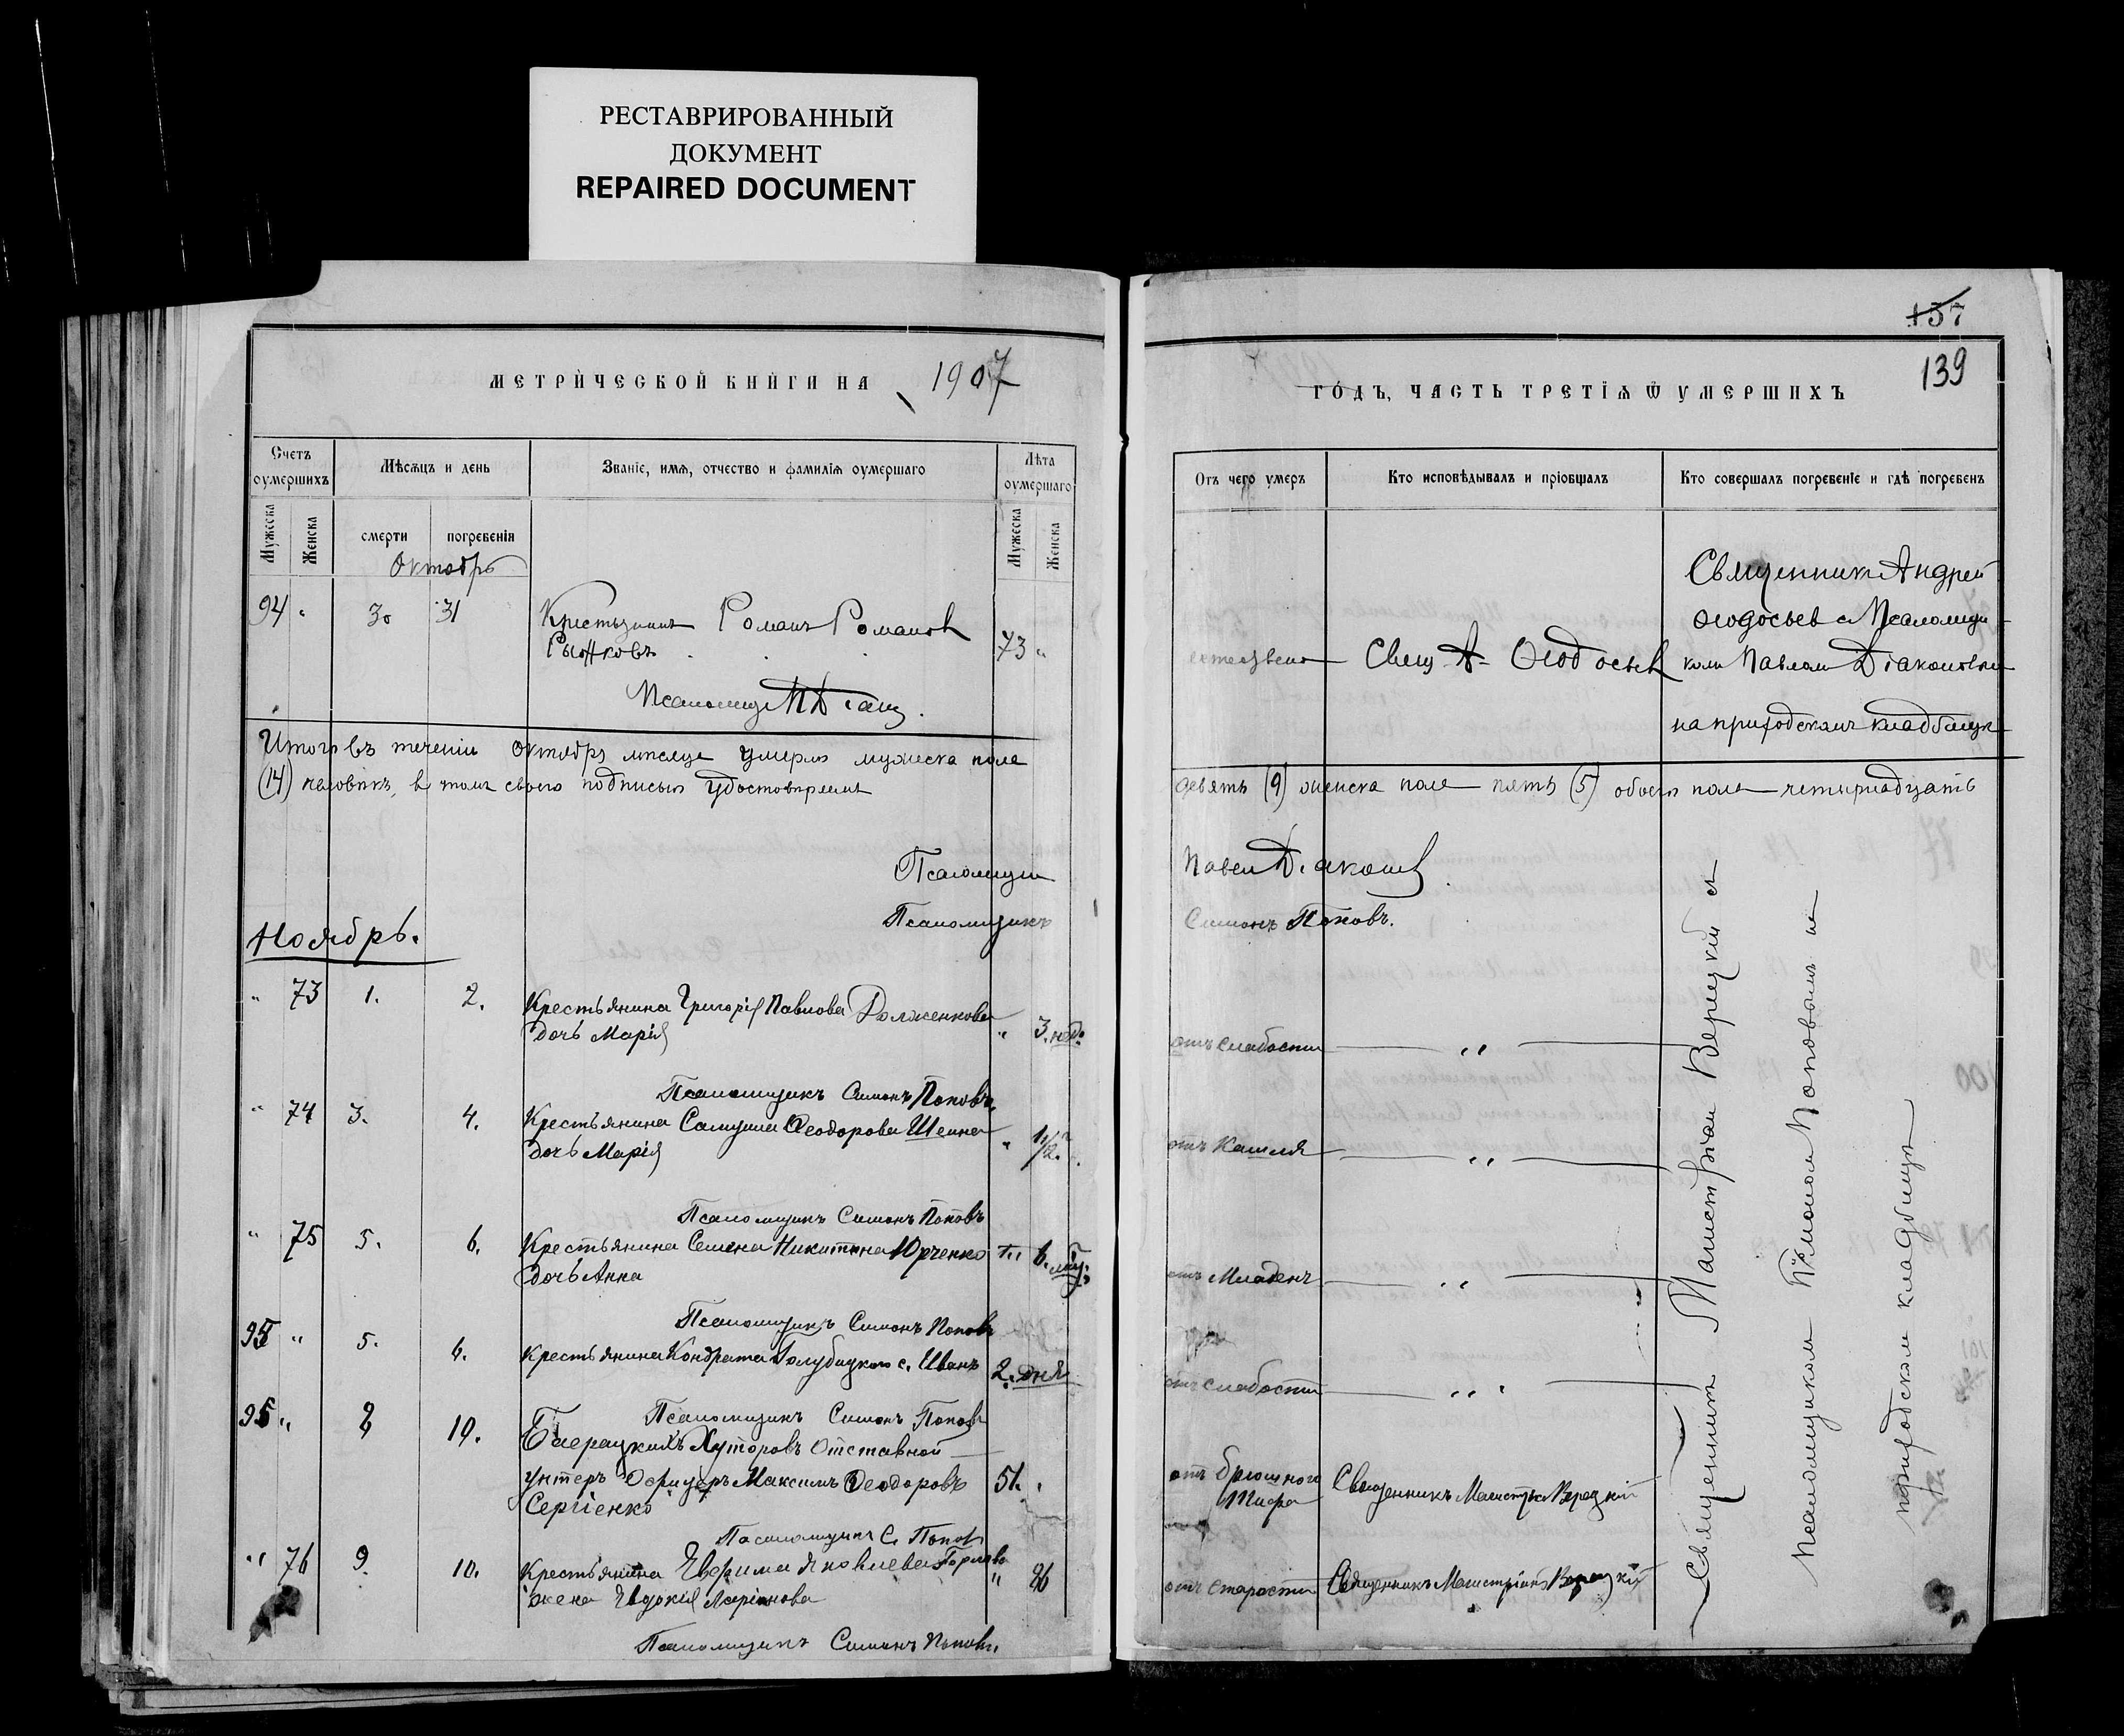 РЕСТАВРИРОВАННЫЙ
ДОКУМЕНТ
REPAIRED DOCUMENT
МЕТРИЧЕСКОЙ КНИГИ НА 1907
Счетъ оумершихъ
Мужеска
Женска
Мѣсяцъ и день
смерти
погребенія
Званіе, имя, отчество и фамилія оумершаго
Лѣта оумершаго
Мужеска
Женска
Октябрь
94 " 30 31 Крестьянинъ Романъ Романовъ
Рыжковъ 73 "
Итого въ теченіи октября мѣсяца умерло мужеска пола
(14) человѣкъ, въ томъ своею подписью удостовѣряемъ
Псаломщикъ
Псаломщикъ
Ноябрь.
" 73 1. 2. Крестьянина Григорія Павлова Долженкова
дочь Марія " 3. нед.
Псаломщикъ Симонъ Поповъ
" 74 3. 4. Крестьянина Самуила Ѳеодорова Шеина
дочь Марія " 1 1/2
Псаломщикъ Симонъ Поповъ
" 75 5. 6. Крестьянина Семена Никитина Юрченко " 6.
дочь Анна
Псаломщикъ Симонъ Поповъ
95 " 5. 6. Крестьянина Кондрата Голубицкаго с. Иванъ 2. дня
Псаломщикъ Симонъ Поповъ
95 " 8 10. Хуторовъ Отставной
Унтеръ Офицеръ Максимъ Ѳеодоровъ 51.
Сергіенко
Псаломщикъ С. Поповъ
" 76 9. 10. Крестьянина Ефима Яковлева "
жена Евдокія Ларіонова 86
Псаломщикъ Симонъ Поповъ.
137
139
ГОДЪ, ЧАСТЬ ТРЕТІЯ Ѿ УМЕРШИХЪ
Отъ чего умеръ
Кто исповѣдывалъ и пріобщалъ
Кто совершалъ погребеніе и гдѣ погребенъ
Священникъ Андрей
Ѳеодосьев с Псаломщи-
Свящ А. Ѳеодосьев
комъ Павломъ Діаконовым
на приходскомъ кладбищѣ
девять (9) женска пола пять (5) обоего пола четырнадцать
Павелъ Діаконовъ
Симонъ Поповъ.
отъ слабости "
отъ Кашля "
отъ Младенч "
отъ слабости "
отъ брюшного Священникъ Верецкій
тифа
отъ старости Священникъ Верецкій
Священникъ Верецкій с
Псаломщикомъ Симономъ Поповымъ на
приходскомъ кладбищѣ